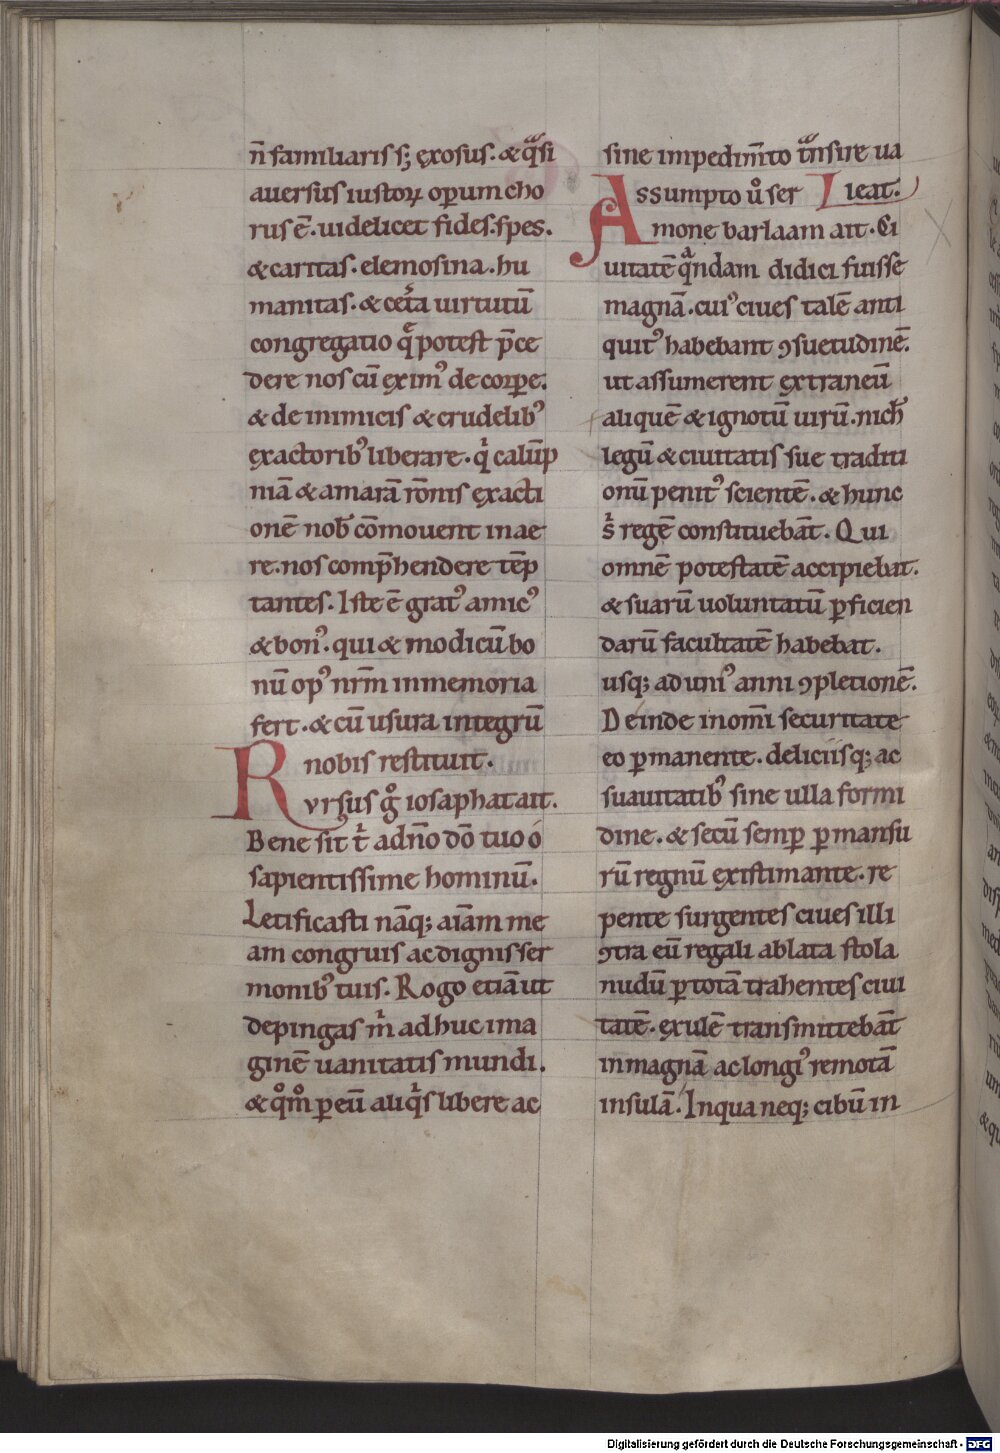 n̄ familiaris s; exosus. & q̃si
auersus iustoꝝ oꝑum cho
rus ē. uidelicet fides. spes.
& caritas. elemosina. hu
manitas. & cet̃a uirtutū
congregatio q̄ potest p̄ce
dere nos cū exim᷒ de corꝑe.
& de inimicis & crudelib᷒
exactorib᷒ liberare. qͥ calūp
niā & amarā rōnis exacti
onē nob̄ cōmouent in ae
re. nos comp̄hendere tēp
tantes. Iste ē grat᷒ amic᷒
& bon᷒. qui & modicū bo
nū op᷒ nr̄m in memoria
fert. & cū usura integrū
nobis restituit.
Rursus gͦ iosaphat ait.
Bene sit tͥ a dn̄o dō tuo ó
sapientissime hominū.
Letificasti nāq; aīam me
am congruis ac dignis ser
monib᷒ tuis. Rogo etiā ut
depingas mͥ adhuc ima
ginē uanitatis mundi.
& qͦmͦ ꝑ eū aliqͥs libere ac
sine impedim̄to tᷓnsire ua
leat.
Assumpto uͦ ser
mone barlaam ait. Ci
uitatē qᷓndam didici fuisse
magnā. cui᷒ ciues talē anti
quit᷒ habebant ꝯsuetudinē.
ut assumerent extraneū
aliquē & ignotū uirū. nich̄
legū & ciuitatis sue traditi
onū penit᷒ scientē. & hunc
sͥ regē constituebāt. Qui
omnē potestatē accipiebat.
& suarū uoluntatū ꝑficien
darū facultatē habebat.
usq; ad uni᷒ anni ꝯpletionē.
Deinde in om̄i securitate
eo ꝑmanente. deliciisq; ac
suauitatib᷒ sine ulla formi
dine. & secū semꝑ ꝑmansu
rū regnū existimante. re
pente surgentes ciues illi
ꝯtra eū regali ablata stola
nudū ꝑ totā trahentes ciui
tatē. exulē transmittebāt
in magnā ac longi᷒ remotā
insulā. In qua neq; cibū in
Digitalisierung gefördert durch die Deutsche Forschungsgemeinschaft - DFG